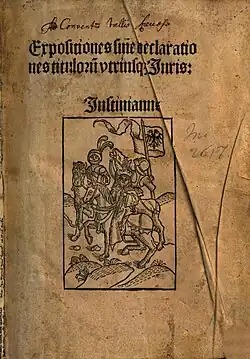 Conventus
Expositiones siue declaratio
nes titulorū vtriusq; Iuris:
Justinianus
2617